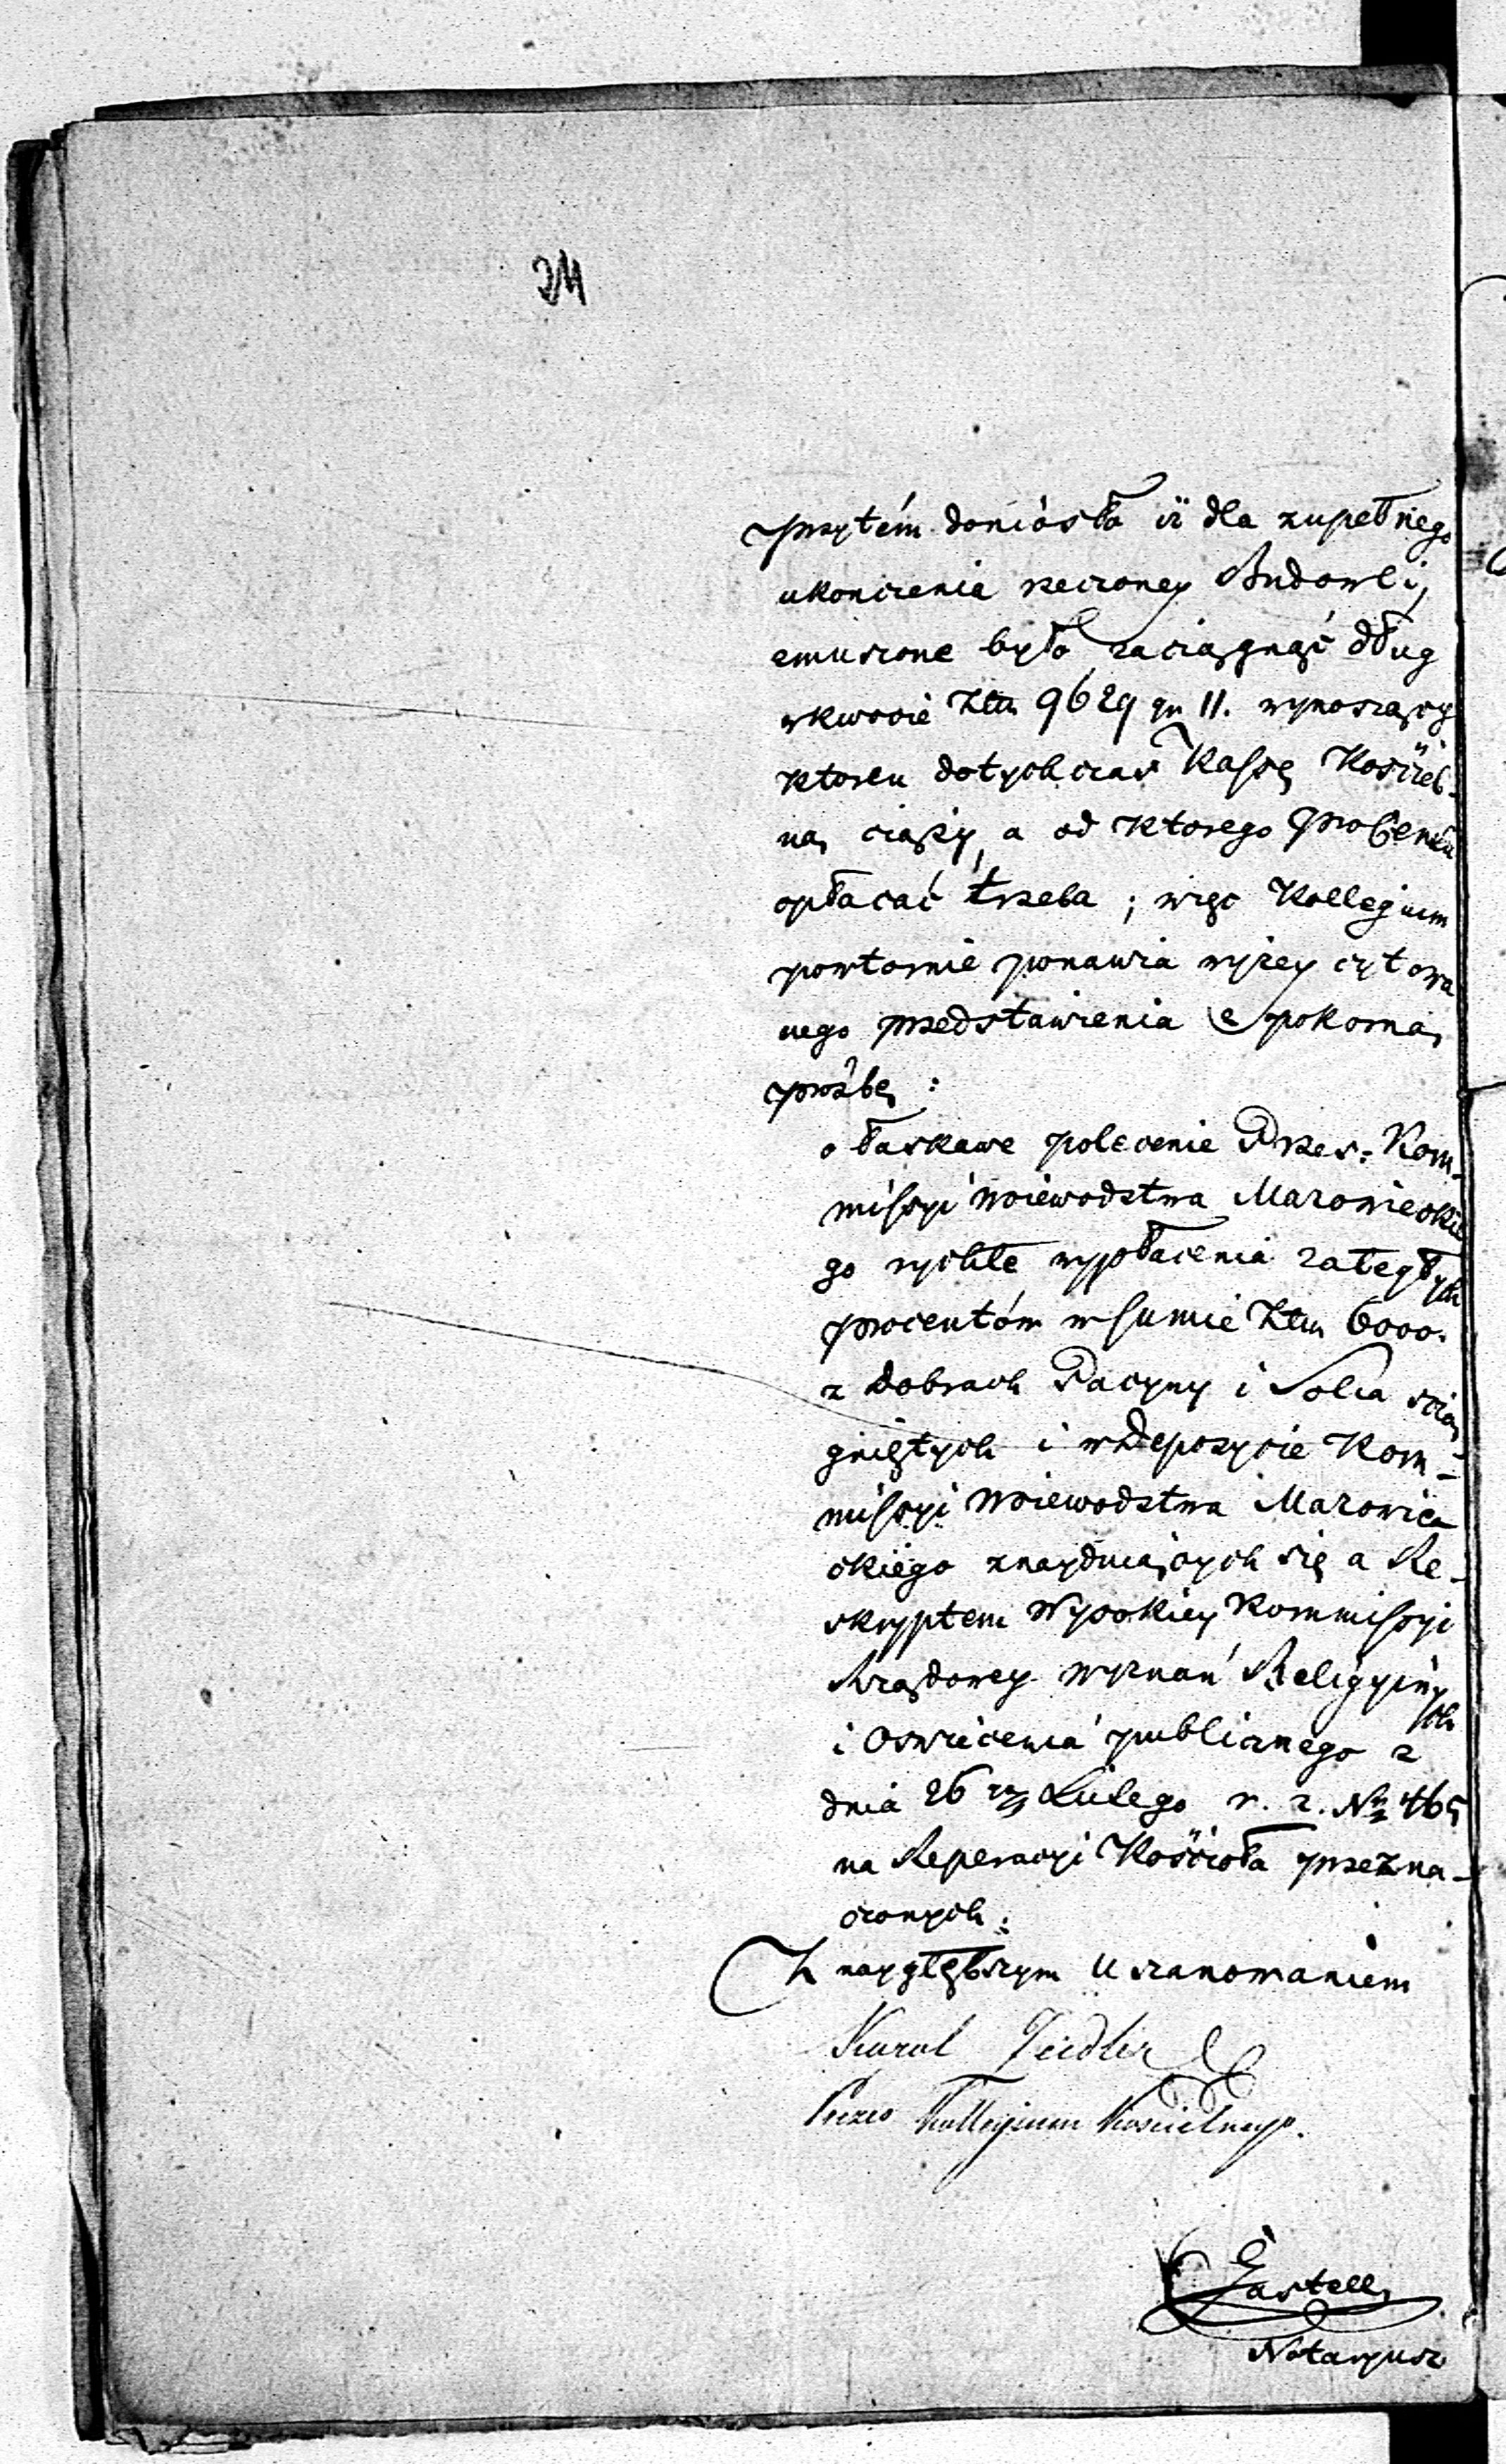 24
przytém doniosło iż dla zupełnego
ukonczenia rzeczoney Budowli,
zmuszone było zaciągnąć dług
w kwocie Złtu 9629 gr 11. wynoszący
ktoren dotychczas Kassę Kościel-
ną ciąży, a od ktorego Procenta
opłacać trzeba; więc Kollegium
powtornie ponawia wyżey cytowa
nego przedstawienia z pokorną
proźbę:
o łaskawe polecenie Przes: Kom-
missyi Woiewodztwa Mazowieckie
go rychłe wypłacenia zaległych
procentów w summie Złtu 6000.
z dobrach Pacyny i Solca ścią
gniętych i w Depozycie Kom-
missyi Woiewodztwa Mazowie
ckiego znayduiących się a Re-
skryptem Wysokiey Kommissyi
Rządowey Wyznań Religyinych
i Oswiecenia publicznego z
dnia 26 Lutego r. z. No 465
na Reperacyi Kościoła przezna-
czonych:
Z naygłębszym Uszanowaniem
Karol Zeidler
Prezes Kollegium Kościelnego.
Notaryusz